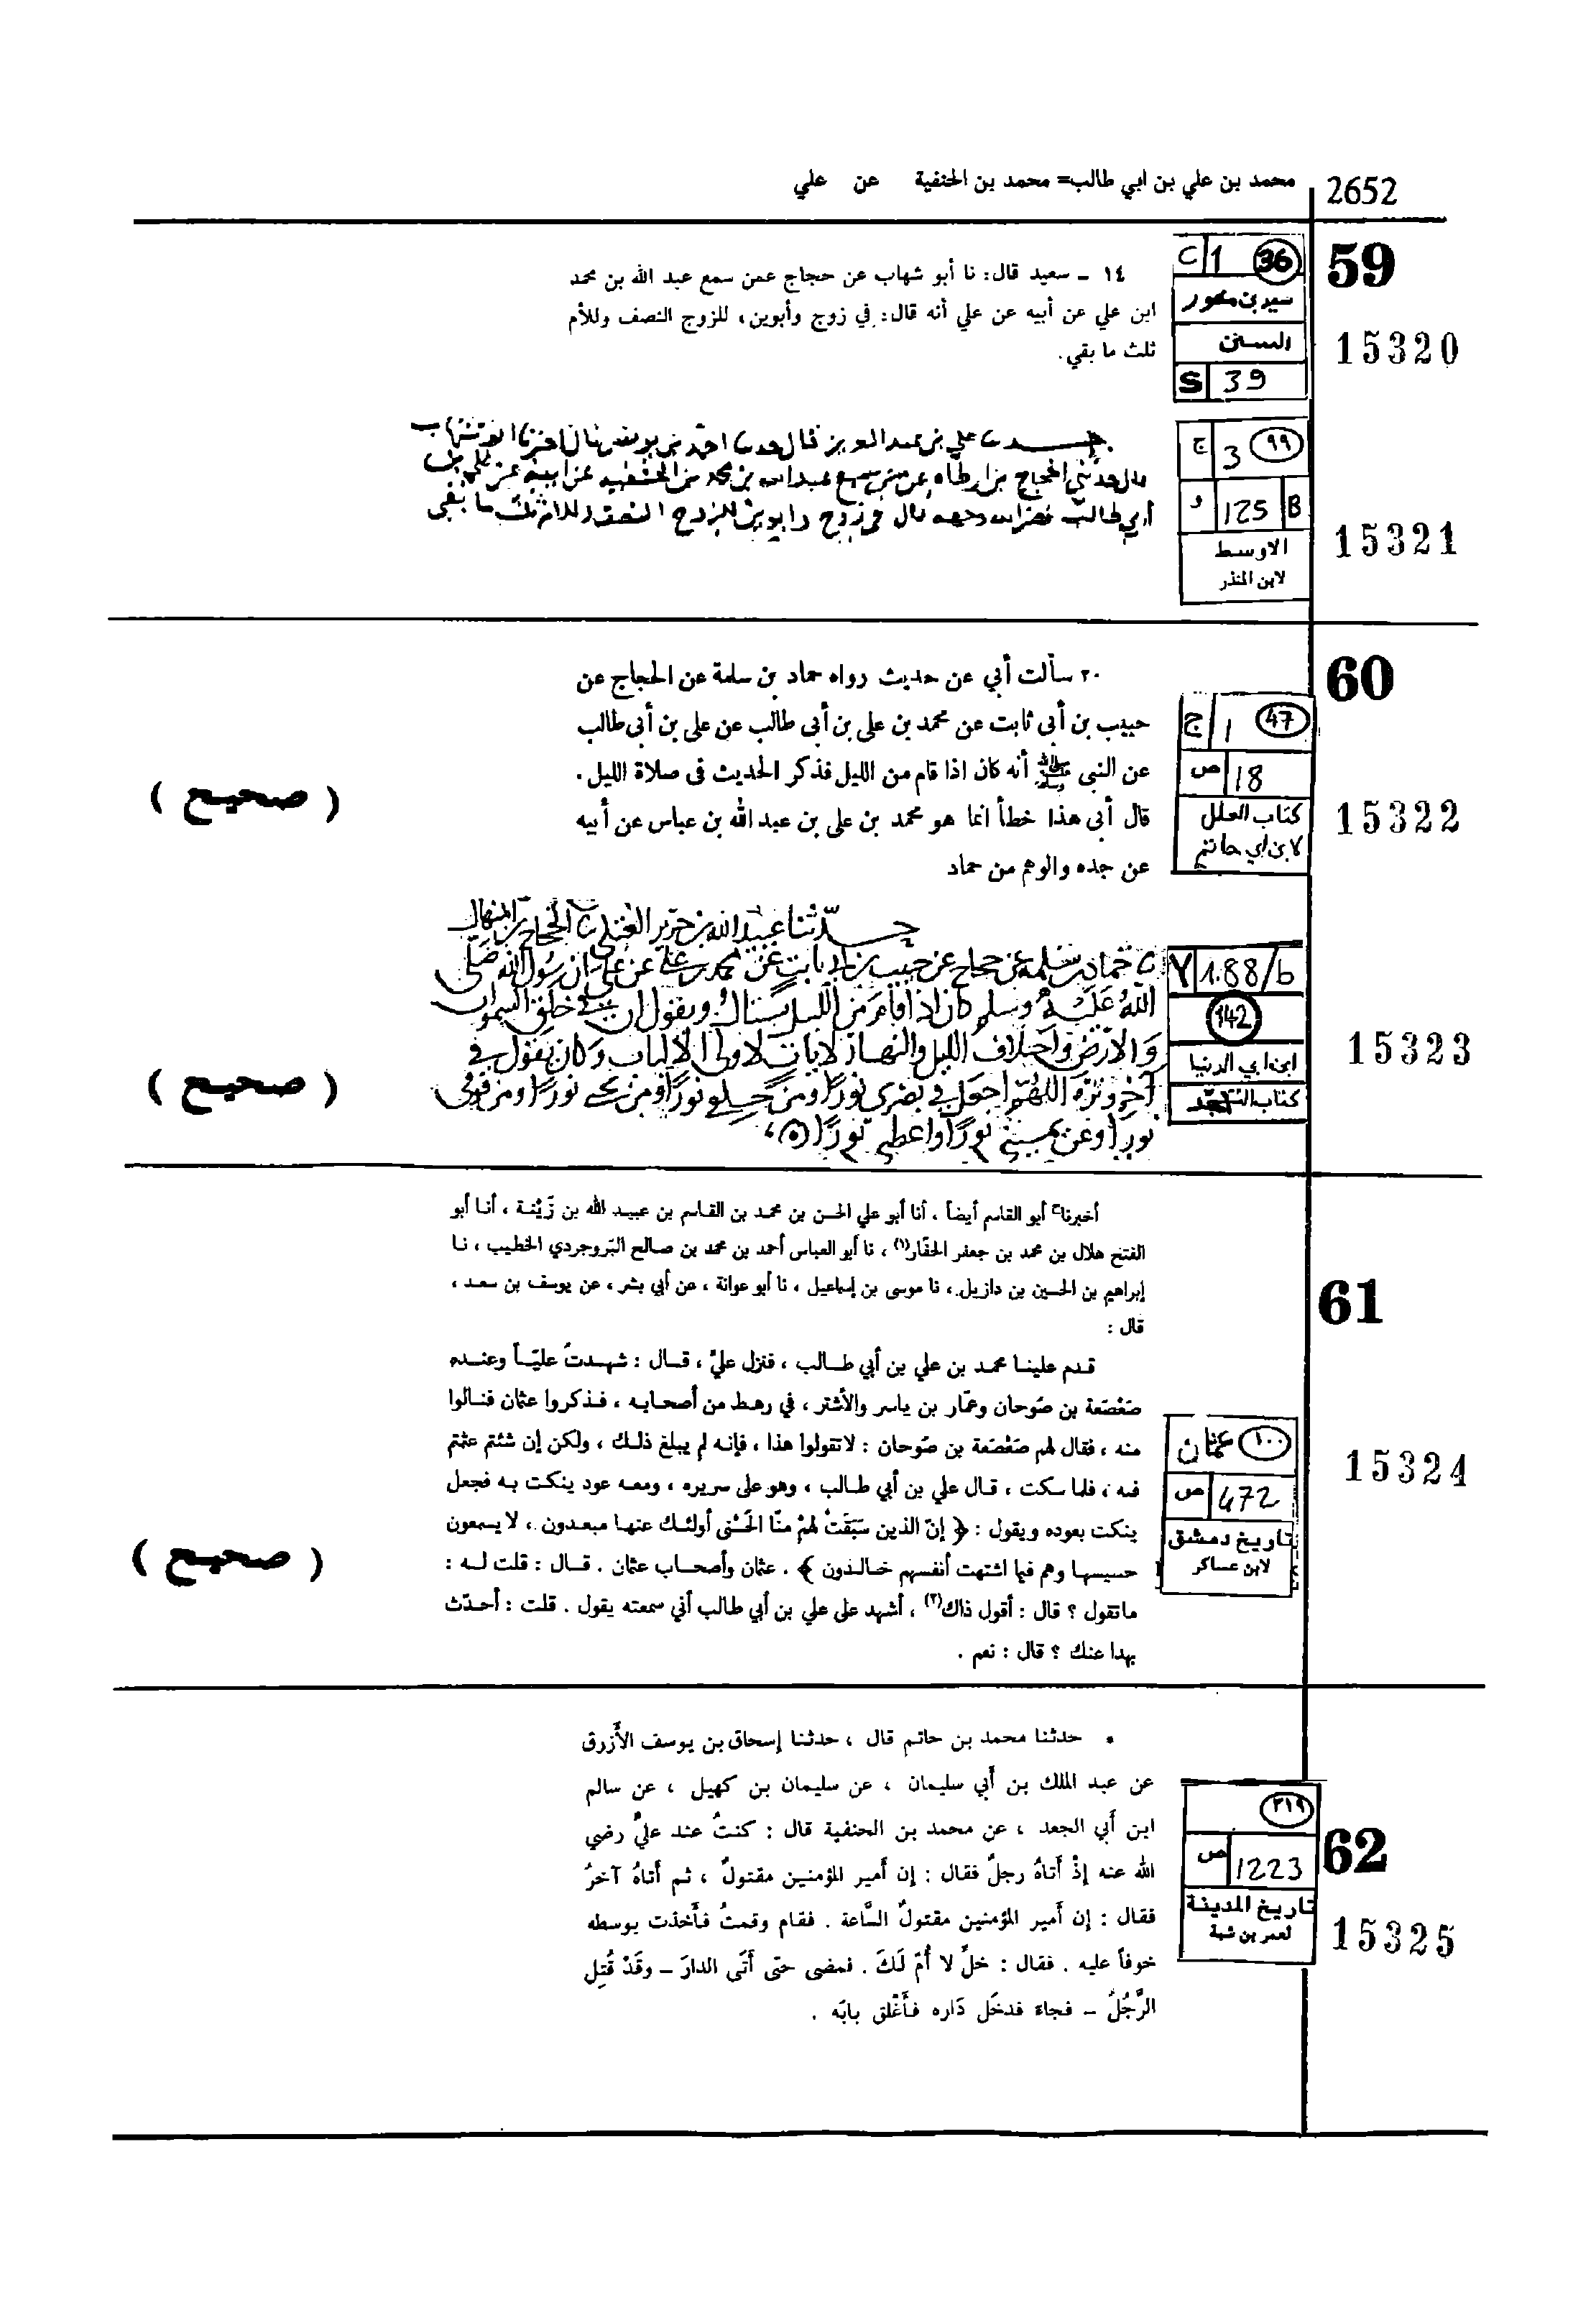 2652
محمد بن علي بن ابي طالب= محمد بن الحنفية عن علي
59
C 1 36
السنن
S 39
15320
١٤ ـ سعيد قال: نا أبو شهاب عن حجاج عمن سمع عبد الله بن محمد
ابن علي عن أبيه عن علي أنه قال: في زوج وأبوين، للزوج النصف وللأم
ثلث ما بقي.
ج 3 ٩٩
و 125 B
الاوسط
لابن المنذر
15321
علي بن عبد العزيز قال
الحجاج بن ارطاه عبد الله بن محمد بن الحنفيه عن ابيه عن علي بن
أبي طالب قال في زوج وابوين للزوج النصف وللام ثلث ما بقى
60
ج 1 47
ص 18
كتاب العلل
لابن ابي حاتم
15322
٢٠ سألت أبي عن حديث رواه حماد بن سلمة عن الحجاج عن
حبيب بن أبي ثابت عن محمد بن على بن أبى طالب عن على بن أبى طالب
عن النبى ﷺ أنه كان اذا قام من الليل فذكر الحديث فى صلاة الليل.
قال أبى هذا خطأ انما هو محمد بن على بن عبد الله بن عباس عن أبيه
عن جده والوهم من حماد
( صحيح )
188/b
142
ابن ابي الدنيا
كتاب التهجد
15323
حدثنا عبيد الله بن جرير العتكي الحجاج بن المنهال
حماد بن سلمه عن حجاج عن حبيب بن أبي ثابت عن محمد بن علي عن علي ان رسول الله صلى
الله عليه وسلم كان اذا قام من الليل يستاك ويقول ان في خلق السموات
والارض واختلاف الليل والنهار لايات لاولي الالباب وكان يقول في
آخر وتره اللهم اجعل في بصري نورا ومن خلفي نورا ومن تحتي نورا ومن فوقي
نورا وعن يميني نورا واعظم نورا
( صحيح )
61
عثمان ١٠٠
ص 472
تاريخ دمشق
لابن عساكر
15324
أخبرنا أبو القاسم أيضاً ، أنا أبو علي الحسن بن محمد بن القاسم بن عبيد الله بن زَيْنة ، أنا أبو
الفتح هلال بن محمد بن جعفر الحفّار(١) ، نا أبو العباس أحمد بن محمد بن صالح البَروجردي الخطيب ، نا
إبراهيم بن الحسين بن دازيل ، نا موسى بن إسماعيل ، نا أبو عوانة ، عن أبي بشر ، عن يوسف بن سعد ،
قال :
قدم علينا محمد بن علي بن أبي طالب ، فنزل عليّ ، قال : شهدتُ عليّاً وعنده
صَعْصَعة بن صُوحان وعمّار بن ياسر والأشتر ، في رهط من أصحابه ، فذكروا عثمان فنالوا
منه ، فقال لهم صَعْصَعة بن صُوحان : لاتقولوا هذا ، فإنه لم يبلغ ذلك ، ولكن إن شئتم عثمتم
فيه ، فلما سكت ، قال علي بن أبي طالب ، وهو على سريره ، ومعه عود ينكت به فجعل
ينكت بعوده ويقول : ﴿ إنّ الذين سَبَقَتْ لهُمْ منّا الحُسْنى أولئك عنها مبعدون ، لا يسمعون
حسيسها وهم فيما اشتهت أنفسهم خالدون ﴾ . عثمان وأصحاب عثمان . قال : قلت له :
ماتقول ؟ قال : أقول ذاك(٢) ، أشهد على علي بن أبي طالب أني سمعته يقول . قلت : أحدّث
بهذا عنك ؟ قال : نعم .
( صحيح )
62
٢١٩
ص 1223
تاريخ المدينة
لعمر بن شبة
15325
* حدثنا محمد بن حاتم قال ، حدثنا إسحاق بن يوسف الأَزرق
عن عبد الملك بن أَبي سليمان ، عن سليمان بن كهيل ، عن سالم
ابن أَبي الجعد ، عن محمد بن الحنفية قال : كنتُ عند عليٍّ رضي
الله عنه إِذْ أَتاهُ رجلٌ فقال : إن أَمير المؤمنين مقتولٌ ، ثم أَتاهُ آخرُ
فقال : إن أَمير المؤمنين مقتولٌ السَّاعة . فقام وقمتُ فأَخذت بوسطه
خوفاً عليه . فقال : خلِّ لا أُمّ لَكَ . فمضى حتى أَتَى الدارَ ــ وقَدْ قُتِل
الرَّجُلُ ــ فجاءَ فدخَل دَاره فأَغْلق بابَه .